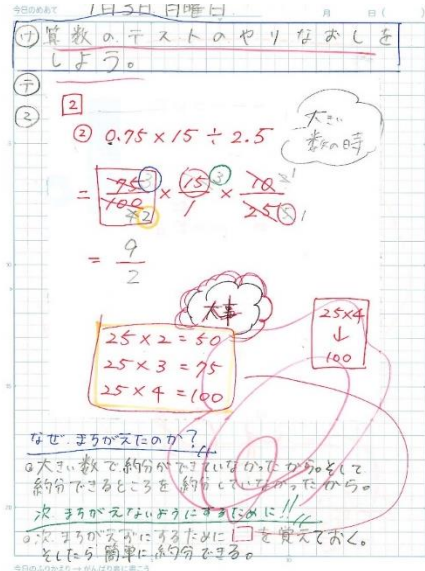 今日のめあて 1月5日 月曜日 月 日( )
け 算数のテストのやりなおしを
しよう。
テ
ミ
2
② 0.75×15÷2.5
大きい
数の時
= 75/100 × 15/1 × 10/25
3 3 1
42 5 1
= 9/2
大事
25×4
↓
100
25×2=50
25×3=75
25×4=100
なぜ、まちがえたのか?
大きい数で約分ができていなかったから。そして
約分できるところを約分していなかったから。
次、まちがえないようにするために!!
次、まちがえずにするために□を覚えておく。
そしたら簡単に約分できる。
今日のふりかえり→がんばり表に書こう